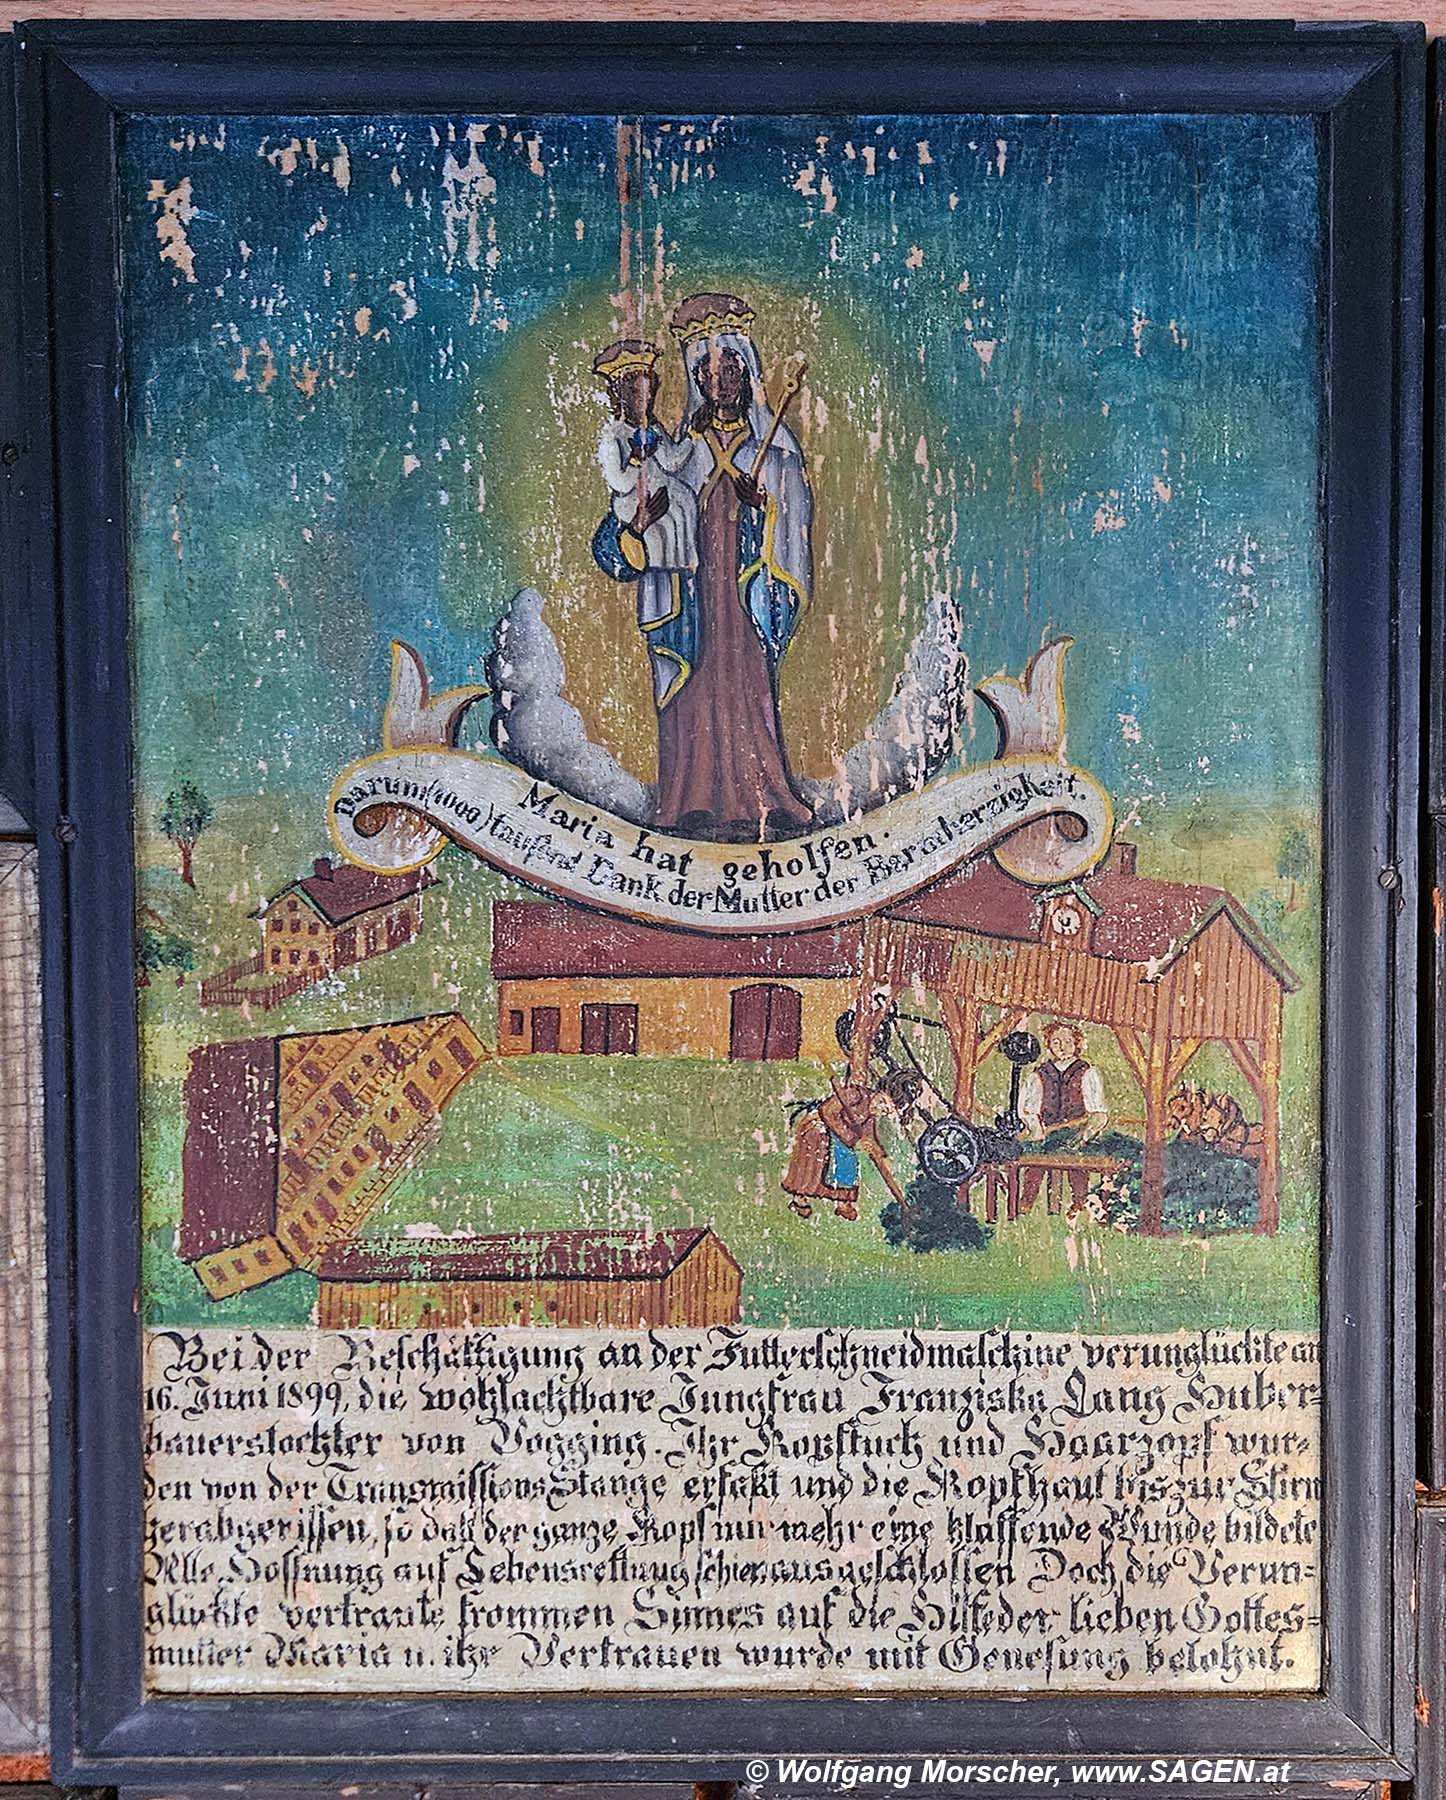 Maria hat geholfen.
Darum (1000) taufend Dank der Mutter der Barmherzigkeit.
Bei der Beschäftigung an der Futterschneidmaschine verunglückte am
16. Juni 1899, die wohlachtbare Jungfrau Franziska Lang Huber=
bauerstochter von Vogging. Ihr Kopftuch und Haarzopf wur=
den von der Transmissions Stange erfaßt und die Kopfhaut bis zur Stirn
herabgerissen, so daß der ganze Kopf nur mehr eine klaffende Wunde bildete
Alle Hoffnung auf Lebensrettung schien ausgeschlossen Doch die Verun=
glückte vertraute frommen Sinnes auf die Hilfe der lieben Gottes=
mutter Maria u. ihr Vertrauen wurde mit Genesung belohnt.
© Wolfgang Morscher, www.SAGEN.at